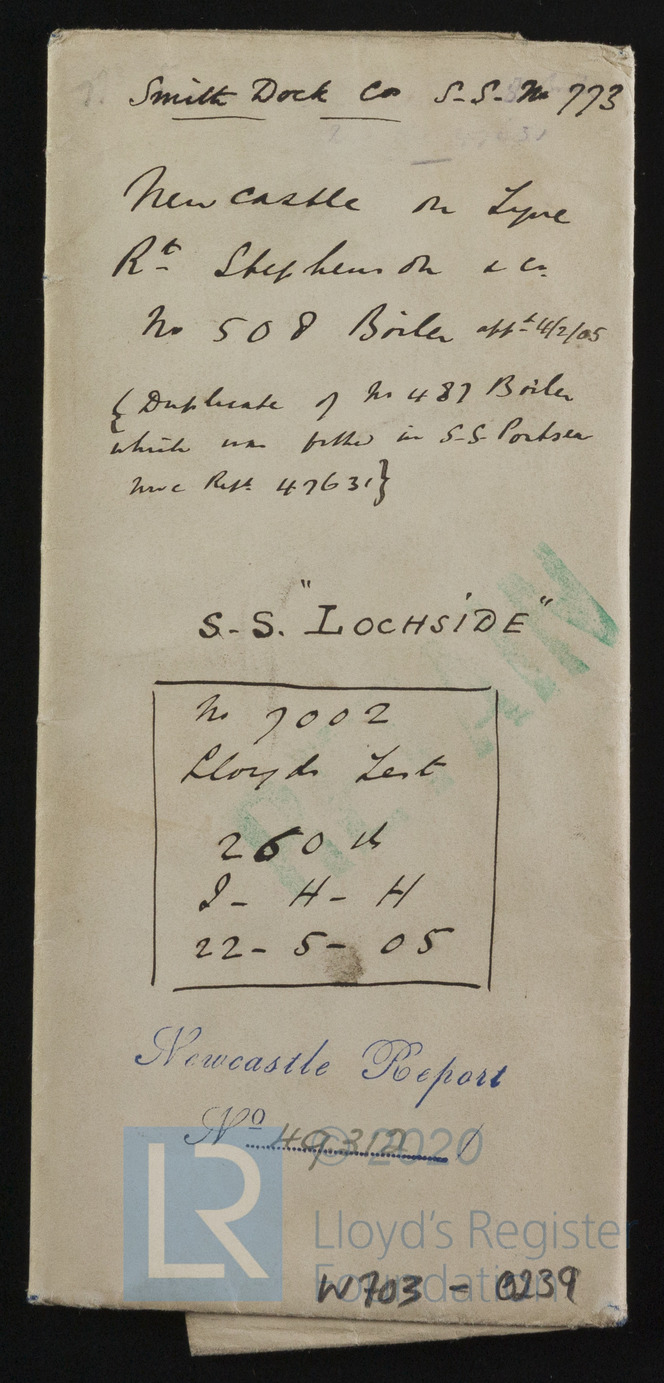 Smith Dock Co S-S- No 773
Newcastle on Tyne
Rt Stephenson & Co
No 508 Boiler appd 4/2/05
{Duplicate of No 487 Boiler
which was fitted in S-S Portsea
Nwc Rept 47631}
S-S. "LOCHSIDE"
No 7002
Lloyds Test
260 lb
J- H- H
22- 5- 05
Newcastle Report
No 49312
© 2020
LR
Lloyd's Register
Foundation
W703 - 0239